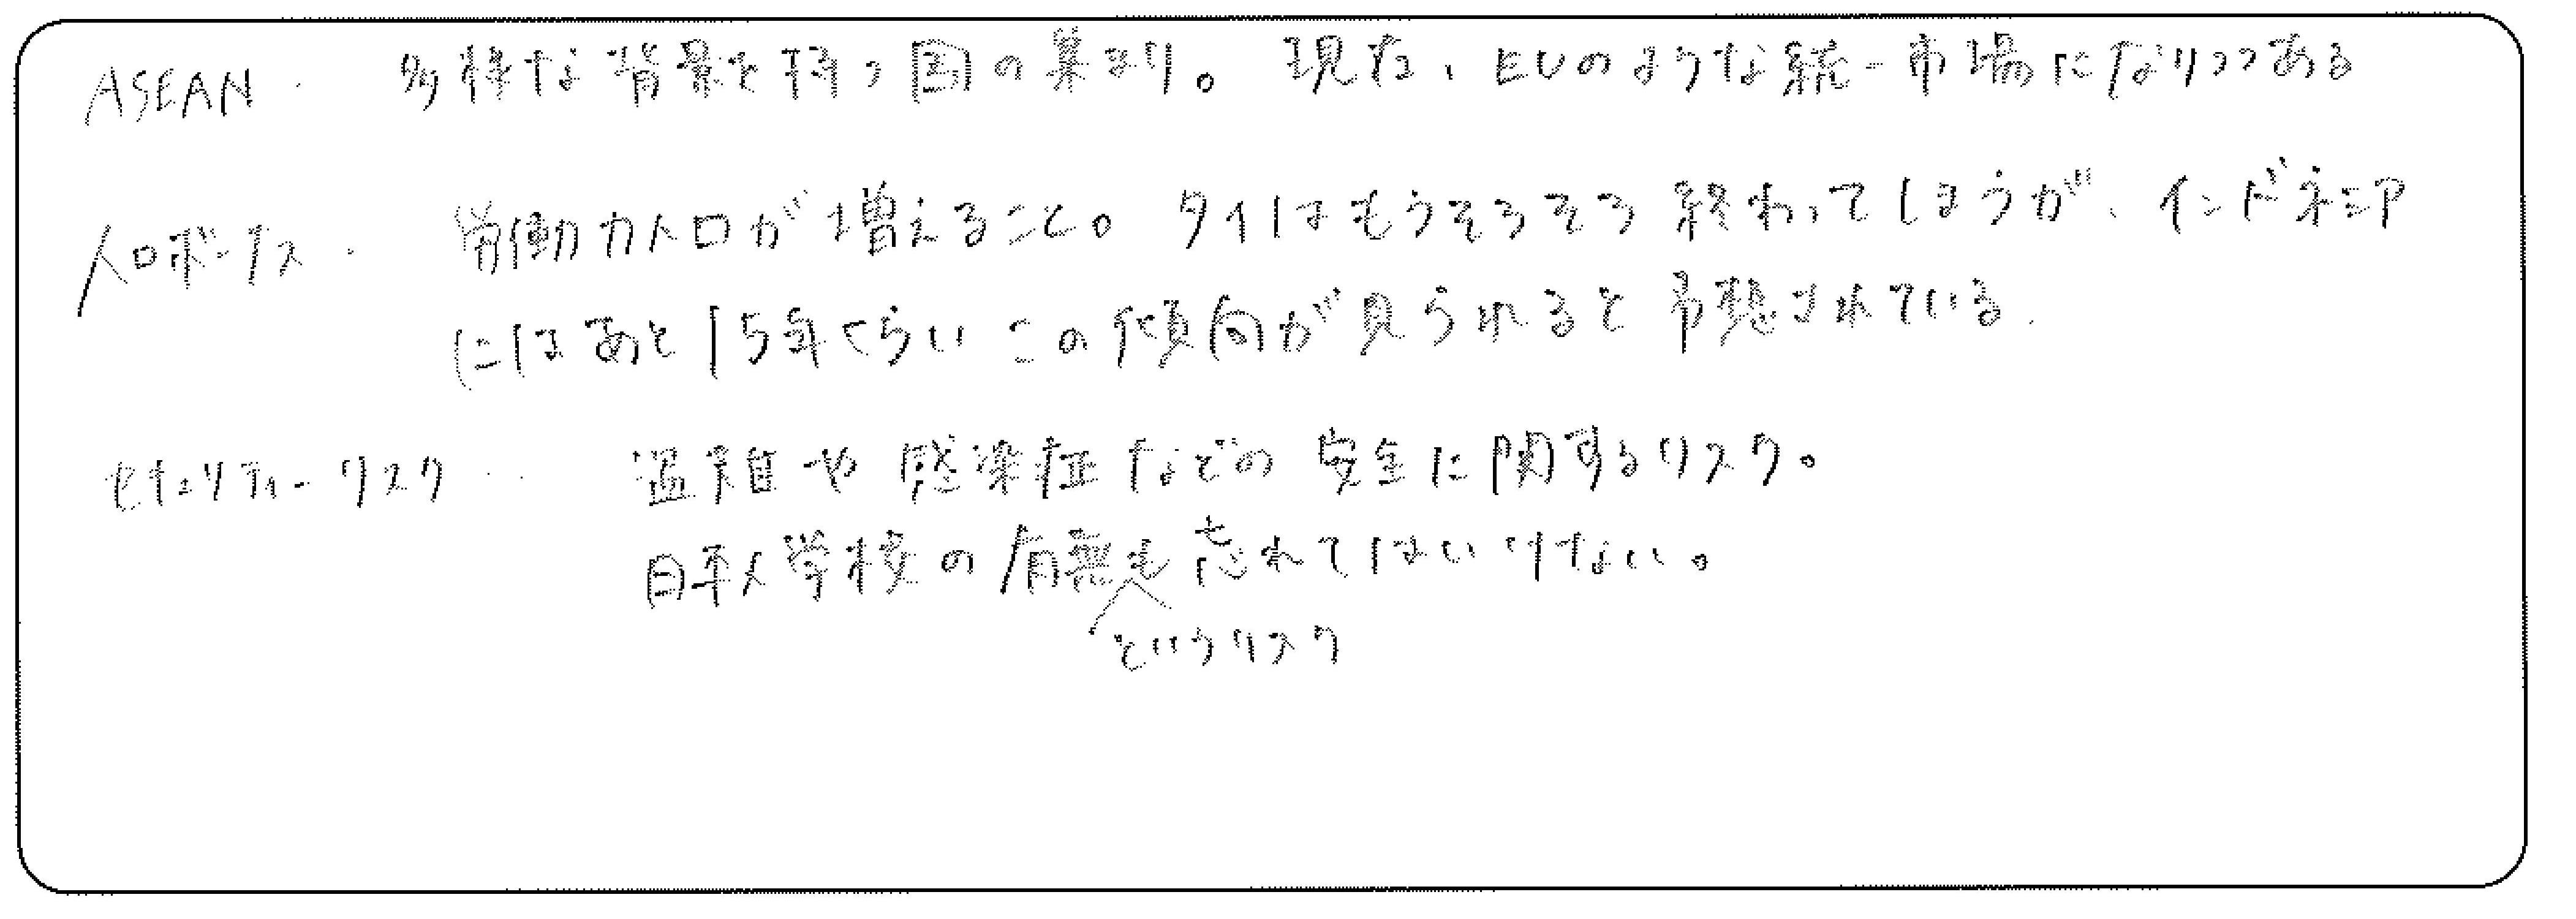 ASEAN・ 多様な背景を持つ国の集まり。 現在、EUのような統一市場になりつつある
人口ボーナス・ 労働力人口が増えること。タイはもうそろそろ終わってしまうが、インドネシア
にはあと15年くらいこの傾向が見られると予想されている.
セキュリティーリスク‥ 盗難や感染症などの安全に関するリスク。
日本人学校の有無も忘れてはいけない。
というリスク